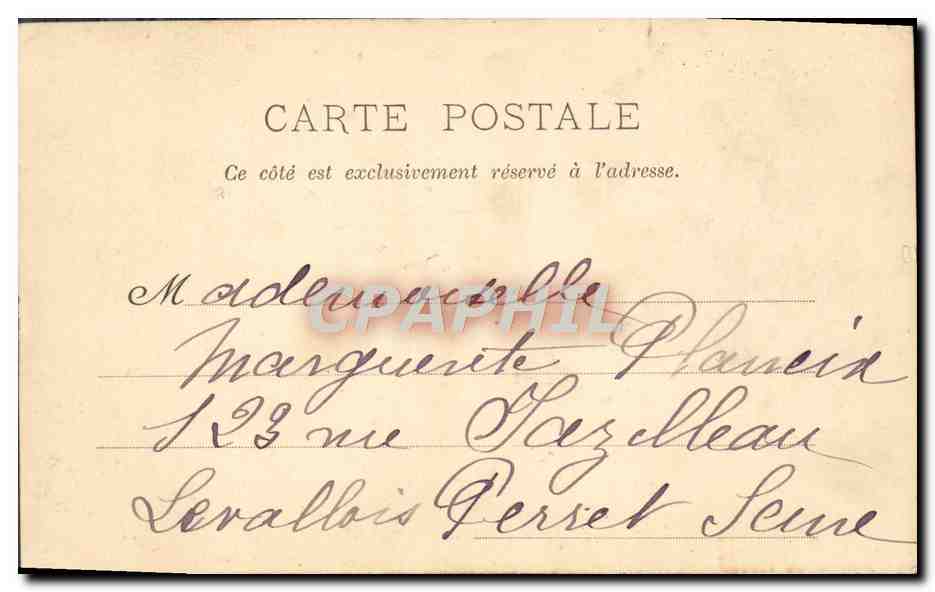 CARTE POSTALE
Ce côté est exclusivement réservé à l'adresse.
Mademoiselle
CPAPHIL
Marguerite Plancix
123 rue
Levallois Perret Seine